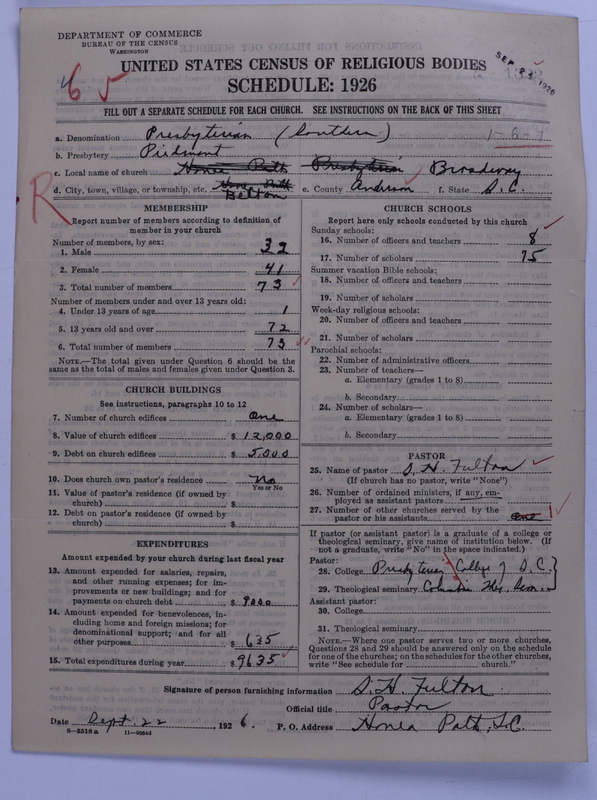 DEPARTMENT OF COMMERCE
BUREAU OF THE CENSUS
WASHINGTON
SEP 23 1926
UNITED STATES CENSUS OF RELIGIOUS BODIES
SCHEDULE: 1926
FILL OUT A SEPARATE SCHEDULE FOR EACH CHURCH. SEE INSTRUCTIONS ON THE BACK OF THIS SHEET
a. Denomination Presbyterian (Southern)
b. Presbytery Piedmont
c. Local name of church Honea Path Presbyterian Broadway
d. City, town, village, or township, etc. Honea Path Belton e. County Anderson f. State S.C.
R
MEMBERSHIP
Report number of members according to definition of
member in your church
Number of members, by sex:
1. Male 32
2. Female 41
3. Total number of members 73
Number of members under and over 13 years old:
4. Under 13 years of age 1
5. 13 years old and over 72
6. Total number of members 73
NOTE.—The total given under Question 6 should be the
same as the total of males and females given under Question 3.
CHURCH BUILDINGS
See instructions, paragraphs 10 to 12
7. Number of church edifices one
8. Value of church edifices $ 12,000
9. Debt on church edifices $ 5,000
10. Does church own pastor's residence no
Yes or No
11. Value of pastor's residence (if owned by
church) $
12. Debt on pastor's residence (if owned by
church) $
EXPENDITURES
Amount expended by your church during last fiscal year
13. Amount expended for salaries, repairs,
and other running expenses; for im-
provements or new buildings; and for
payments on church debt $ 9000
14. Amount expended for benevolences, in-
cluding home and foreign missions; for
denominational support; and for all
other purposes $ 635
15. Total expenditures during year $ 9635
CHURCH SCHOOLS
Report here only schools conducted by this church
Sunday schools:
16. Number of officers and teachers 8
17. Number of scholars 75
Summer vacation Bible schools:
18. Number of officers and teachers
19. Number of scholars
Week-day religious schools:
20. Number of officers and teachers
21. Number of scholars
Parochial schools:
22. Number of administrative officers
23. Number of teachers—
a. Elementary (grades 1 to 8)
b. Secondary
24. Number of scholars—
a. Elementary (grades 1 to 8)
b. Secondary
PASTOR
25. Name of pastor S. H. Fulton
(If church has no pastor, write "None")
26. Number of ordained ministers, if any, em-
ployed as assistant pastors
27. Number of other churches served by the
pastor or his assistants one 1
If pastor (or assistant pastor) is a graduate of a college or
theological seminary, give name of institution below. (If
not a graduate, write "No" in the space indicated.)
Pastor:
28. College Presbyterian College of S.C.
29. Theological seminary Columbia The. Sem.
Assistant pastor:
30. College
31. Theological seminary
NOTE.—Where one pastor serves two or more churches,
Questions 28 and 29 should be answered only on the schedule
for one of the churches; on the schedules for the other churches,
write "See schedule for church."
Signature of person furnishing information S. H. Fulton
Official title Pastor
Date Sept. 22 1926. P. O. Address Honea Path, S.C.
8—5518a 11—9054d